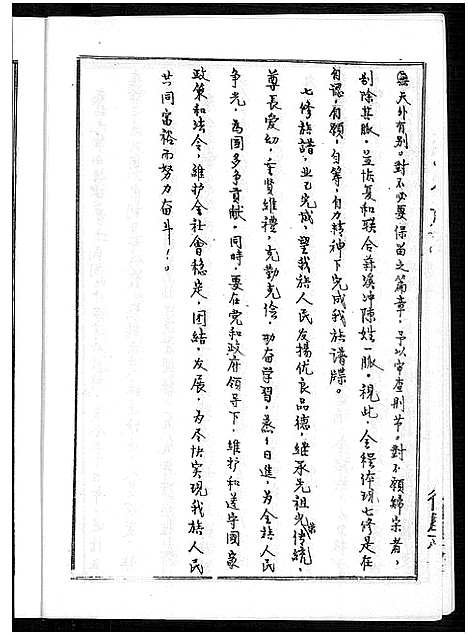 無天外有别。對不必要保苗之篇章！予以审查删节。對不願歸宗者，
剔除其脉，並恢复和联合蘇溪冲陳姓一脉，视此，全程体现七修是在
自認，自願，自筹，自力精神下完成我族譜牒。
七修族譜，业已完成，望我族人民发揚优良品德，继承先祖光榮传統，
尊長爱幼，重賢維禮，克勤克儉，功奋学習，蒸蒸日進，为全族人民
争光，為國多争貢献。同時，要在党和政府領导下，維护和遵守國家
政策和法令，維护全社會稳定，团結，发展，为尽快实現我族人民
共同富裕而努力奋斗！。